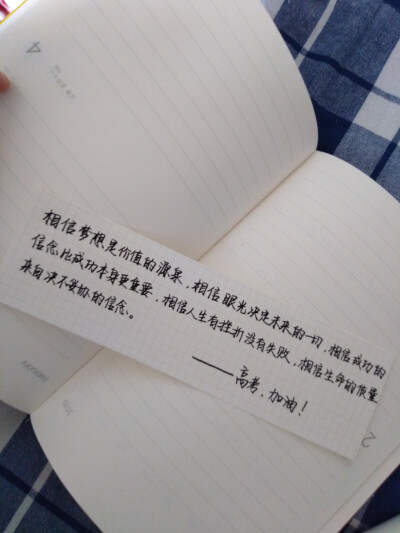 相信梦想是价值的源泉，相信眼光决定未来的一切，相信成功的
信念比成功本身更重要，相信人生有挫折没有失败，相信生命的质量
来自决不妥协的信念。
——高考，加油！
4
2